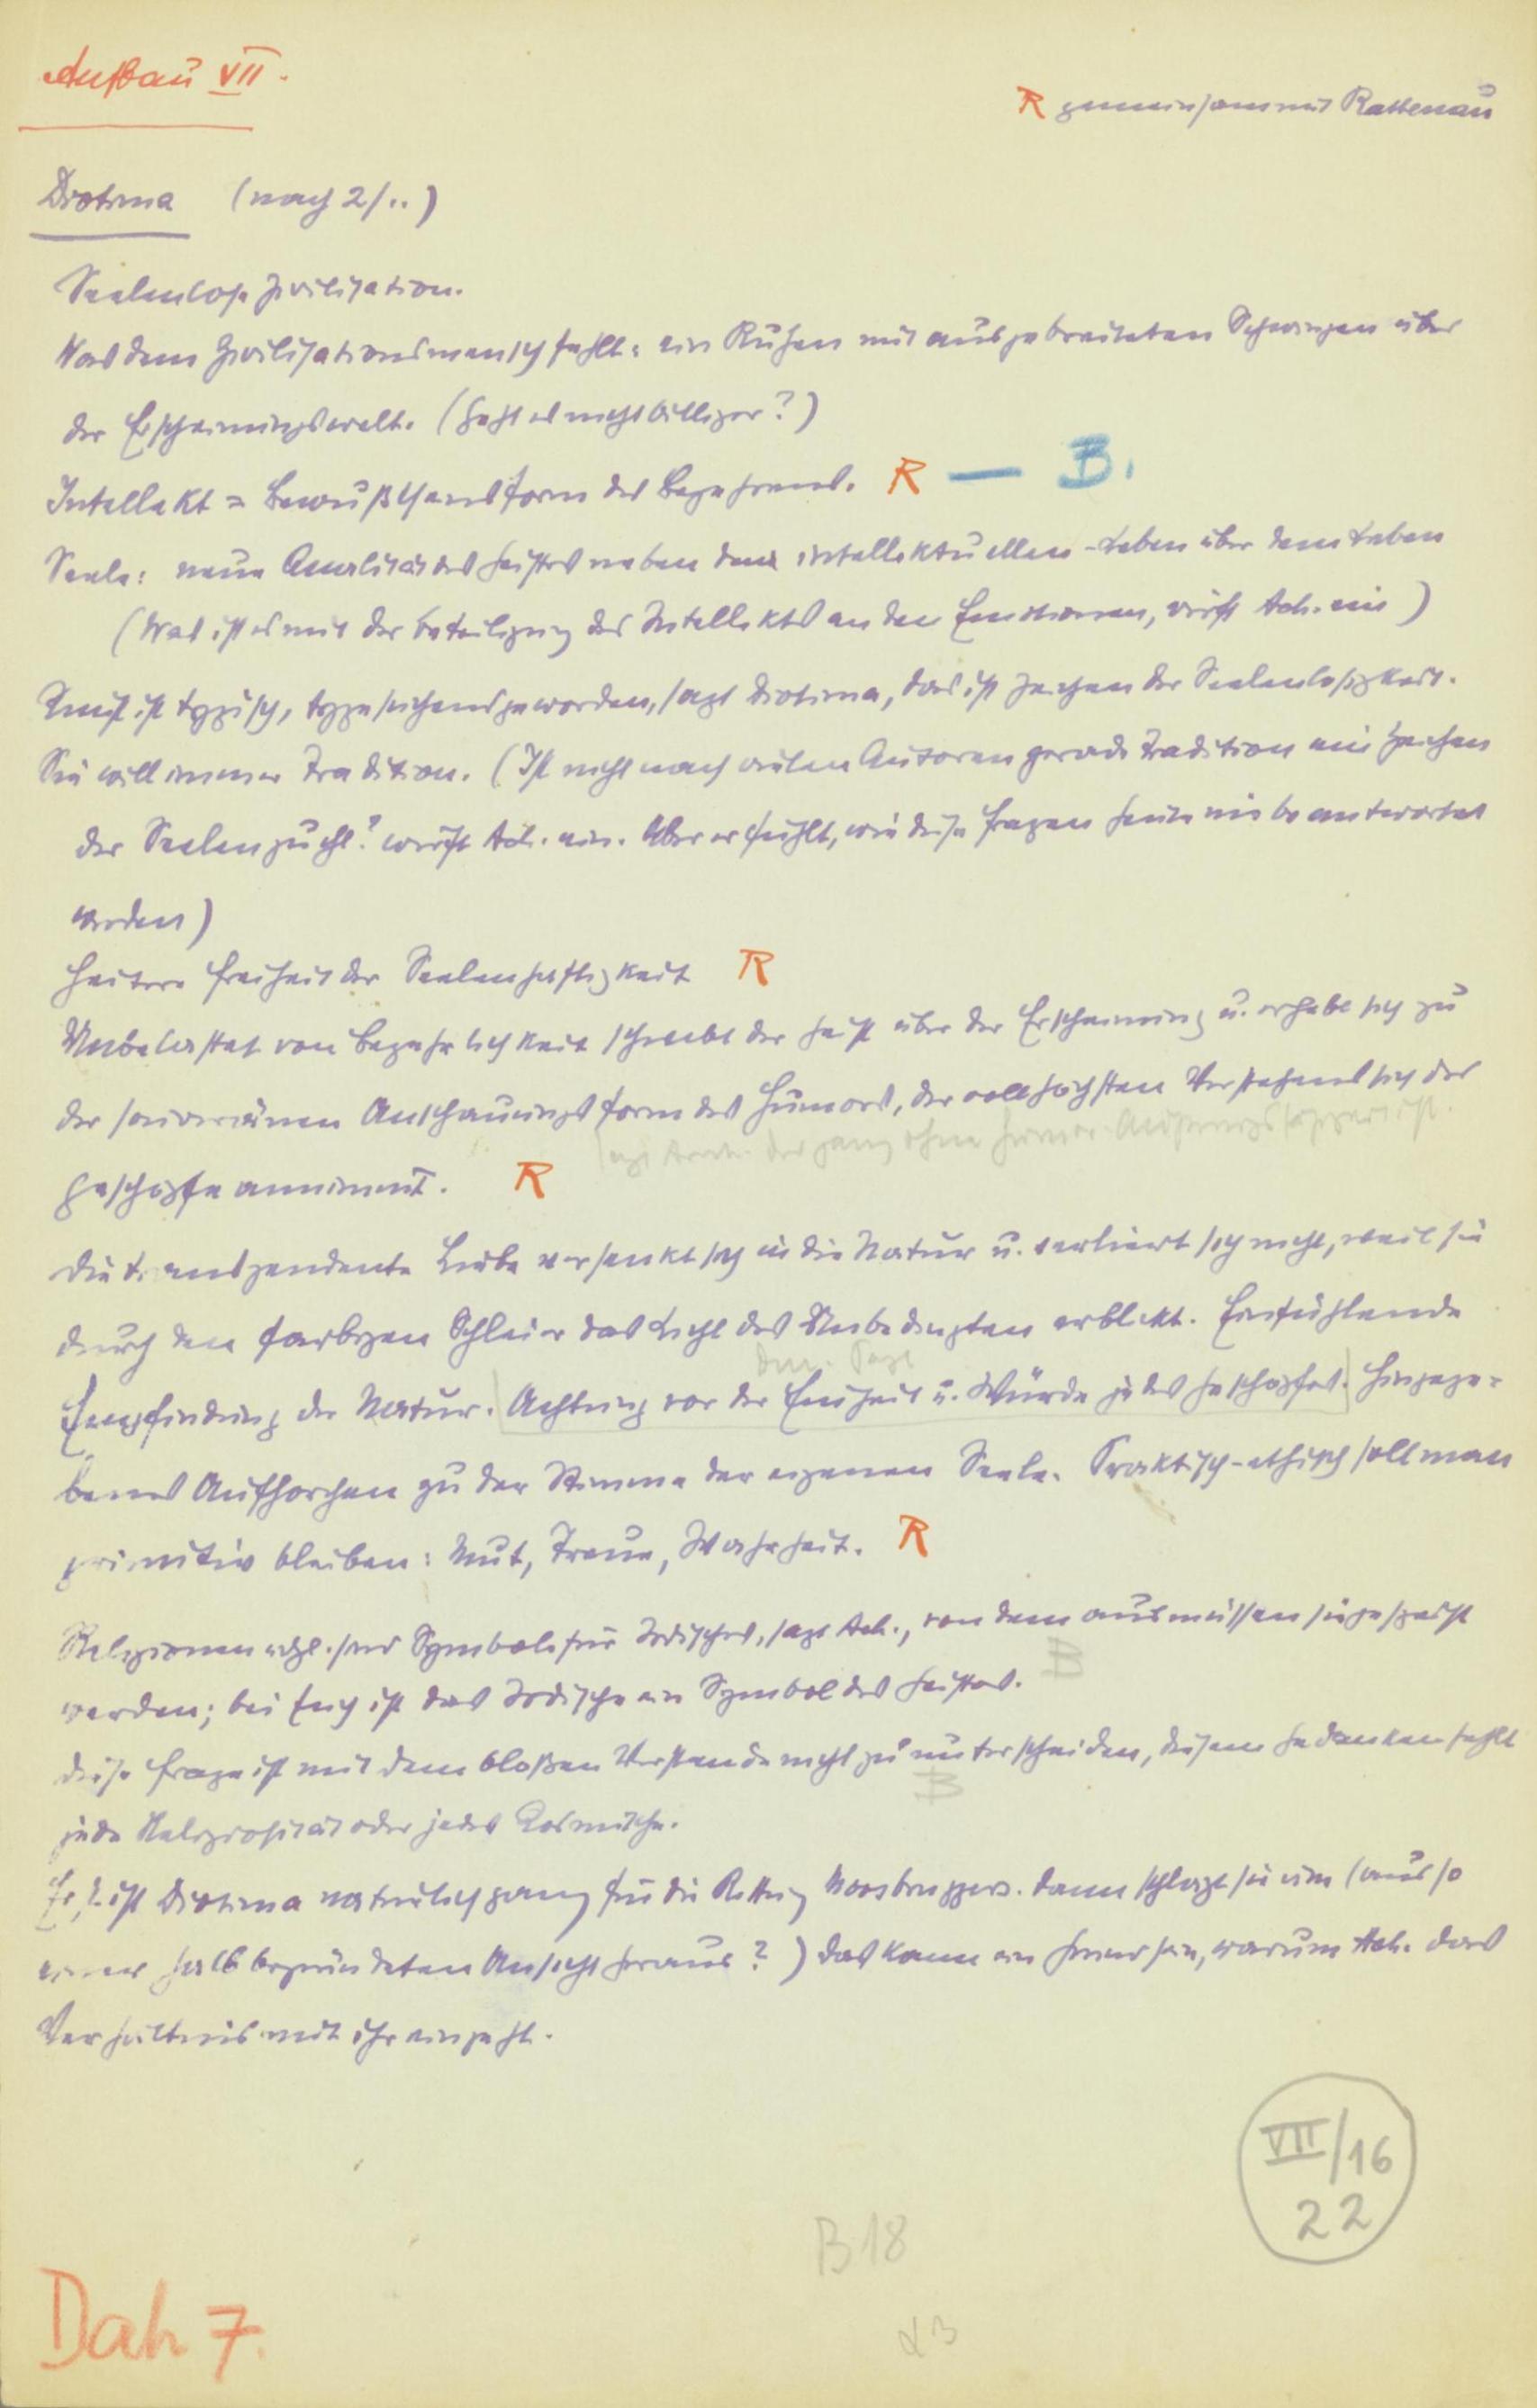 Aufbau VII.
R gemeinsam mit Rathenau
Diotima (nach 2/..)
Seelenlose Zivilisation.
Was dem Zivilisationsmensch fehlt: ein Ruhen mit ausgebreiteten Schwingen über
der Erscheinungswelt. (Geht es nicht billiger?)
Intellekt = Bewußtseinsform des Begehrens. R — B.
Seele: neue Qualität des Geistes neben dem intellektuellen - Leben über dem Leben
(Was ist es mit der Beteiligung des Intellekts an den Emotionen, wirft Ach. ein)
Kunst ist typisch, typensuchend geworden, sagt Diotima, das ist Zeichen der Seelenlosigkeit.
Sie will immer Tradition. (Ist nicht nach vielen Autoren gerade Tradition ein Zeichen
der Seelenzucht? wirft Ach. ein. Aber er fühlt, wie diese Fragen heute nie beantwortet
werden)
Heitere Freiheit der Seelenhaftigkeit R
Unbelastet von Begehrlichkeit schwebt der Geist über der Erscheinung u. erhebt sich zu
der souveränen Anschauungsform des Humors, der voll höchsten Verstehens sich der
sagt Arnh. der ganz ohne Humor
Geschöpfe annimmt. R
Die transzendente Liebe versenkt sich in die Natur u. verliert sich nicht, weil sie
durch den farbigen Schleier das Licht des Unbedingten erblickt. Einfühlende
Empfindung der Natur. Achtung vor der Einheit u. Würde jedes Geschöpfes. Hingege-
benes Aufhorchen zu der Stimme der eigenen Seele. Praktisch-ethisch soll man
primitiv bleiben: Mut, Treue, Wahrheit. R
Religionen udgl. sind Symbole für Irdisches, sagt Ach., von dem aus müssen sie gespeist
B
werden; bei Euch ist das Irdische ein Symbol des Geistes.
Diese Frage ist mit dem bloßen Verstande nicht zu unterscheiden, diesem Gedanken fehlt
B
jede Religiosität oder jedes Kosmische.
ist Diotima natürlich ganz für die Rettung Moosbruggers. dann schlägt sie um (aus so
einer halb begründeten Ansicht heraus?) das kann ein Grund sein, warum Ach. das
Verhältnis mit ihr eingeht.
VII/16
22
B 18
Dah 7.